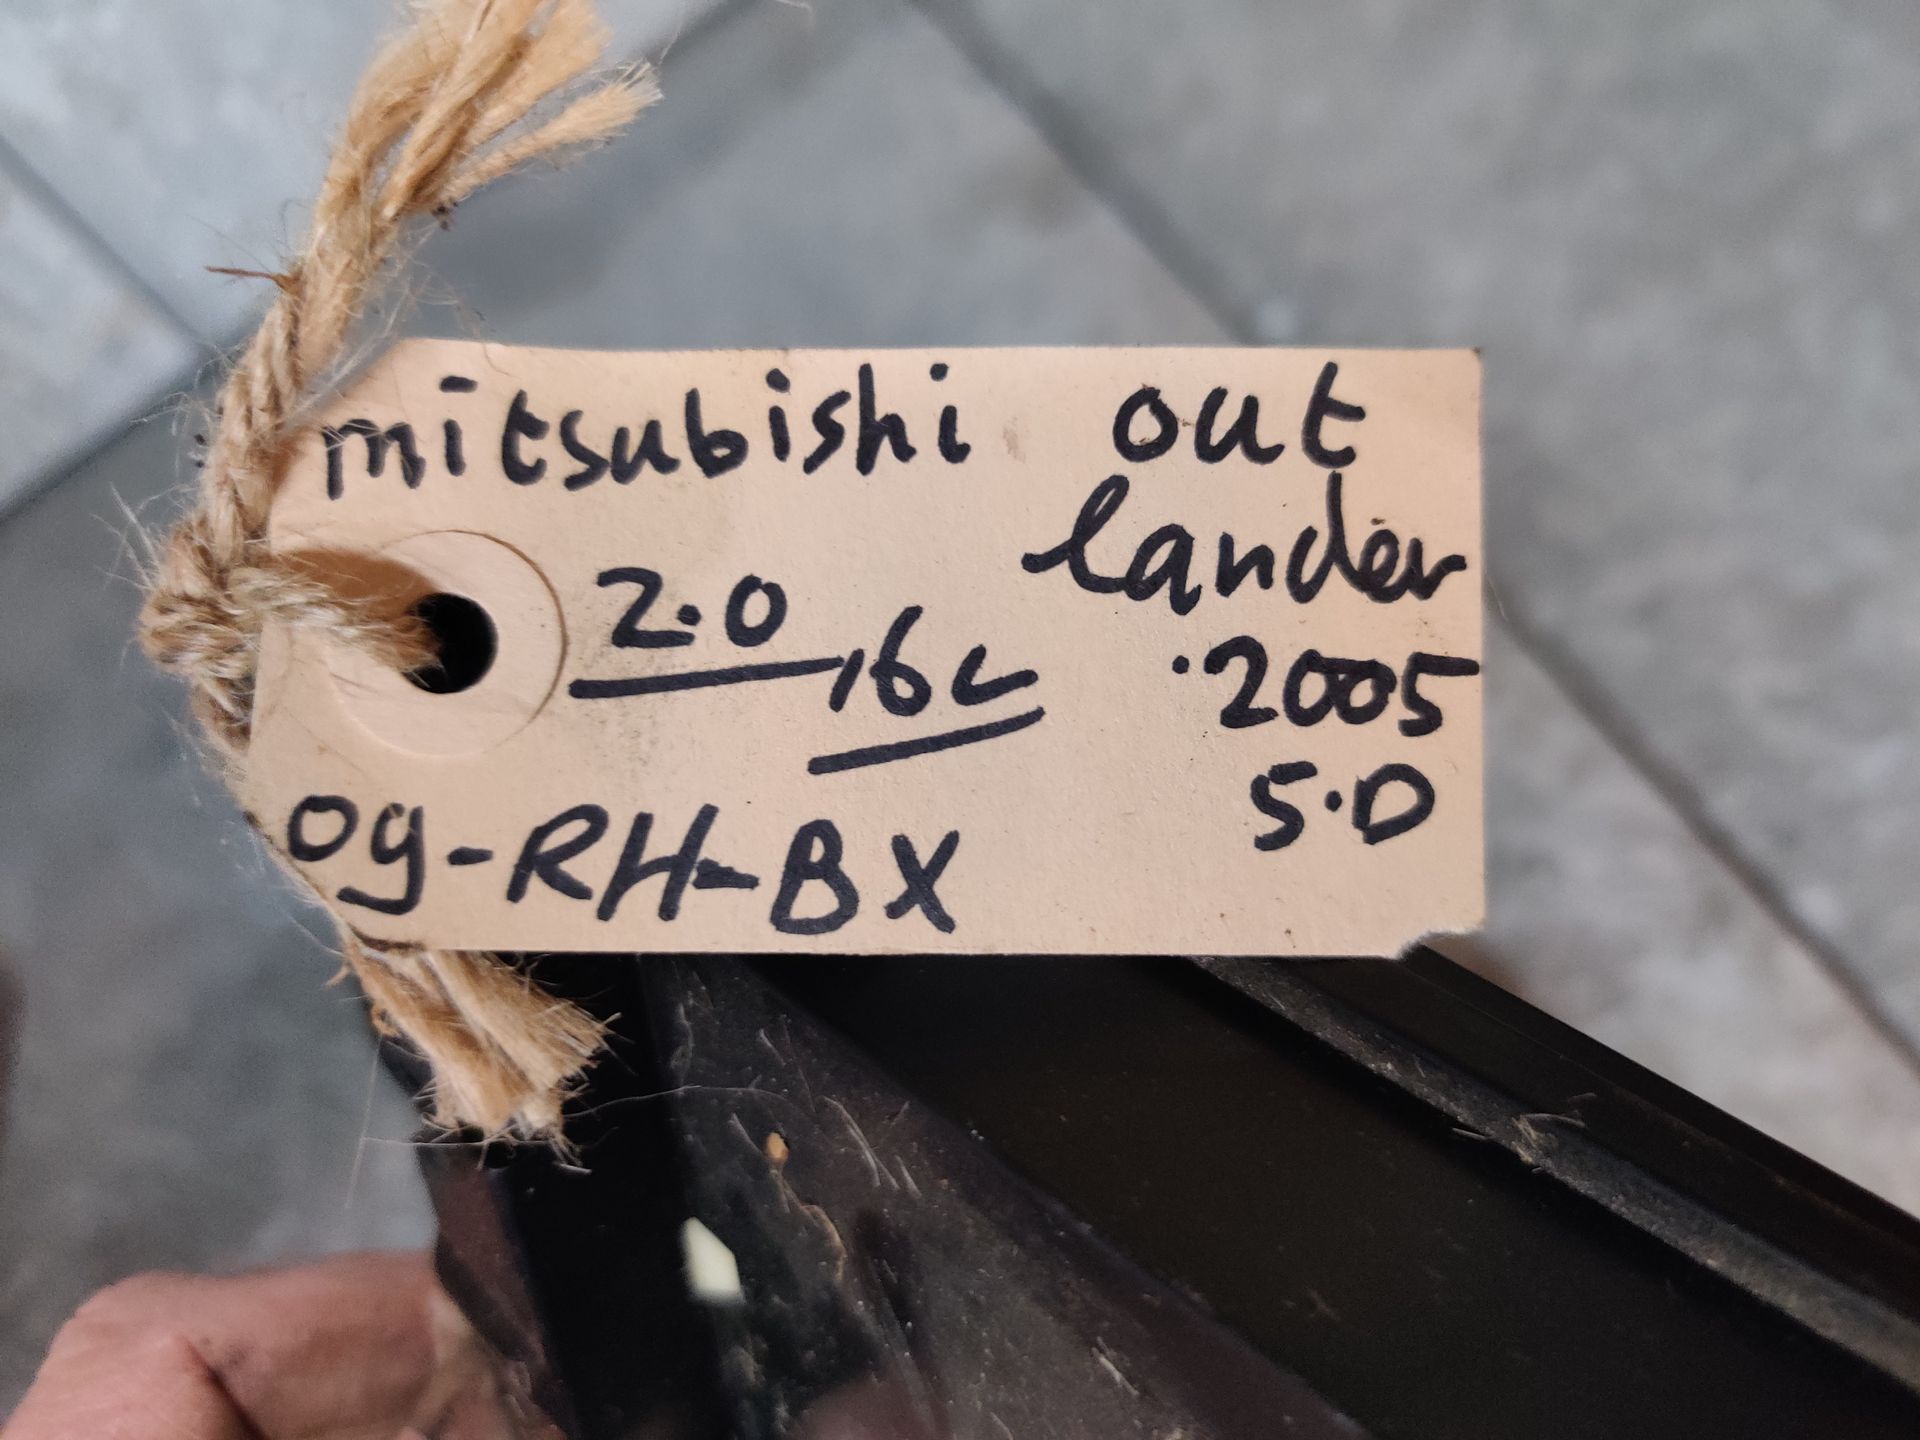 mitsubishi out
lander
2.0 16v
.2005
5.D
09-RH-BX